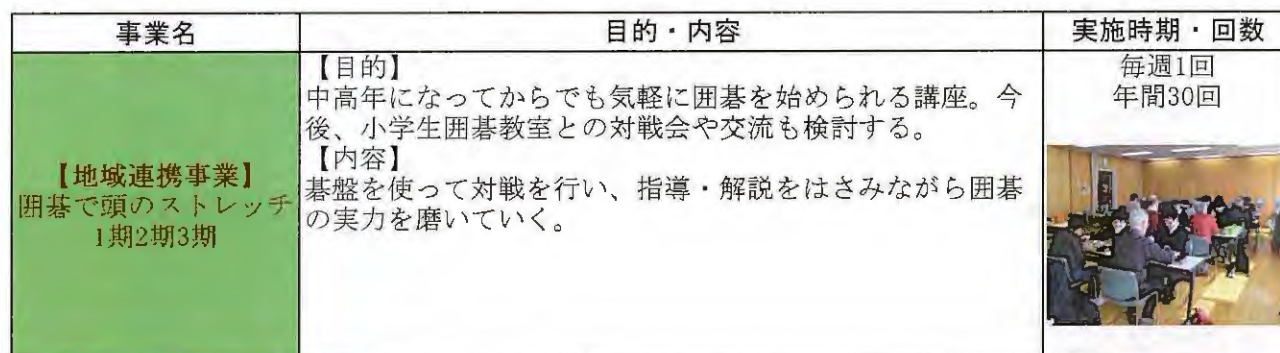 事業名
目的・内容
実施時期・回数
【地域連携事業】
囲碁で頭のストレッチ
1期2期3期
【目的】
中高年になってからでも気軽に囲碁を始められる講座。今
後、小学生囲碁教室との対戦会や交流も検討する。
【内容】
碁盤を使って対戦を行い、指導・解説をはさみながら囲碁
の実力を磨いていく。
毎週1回
年間30回